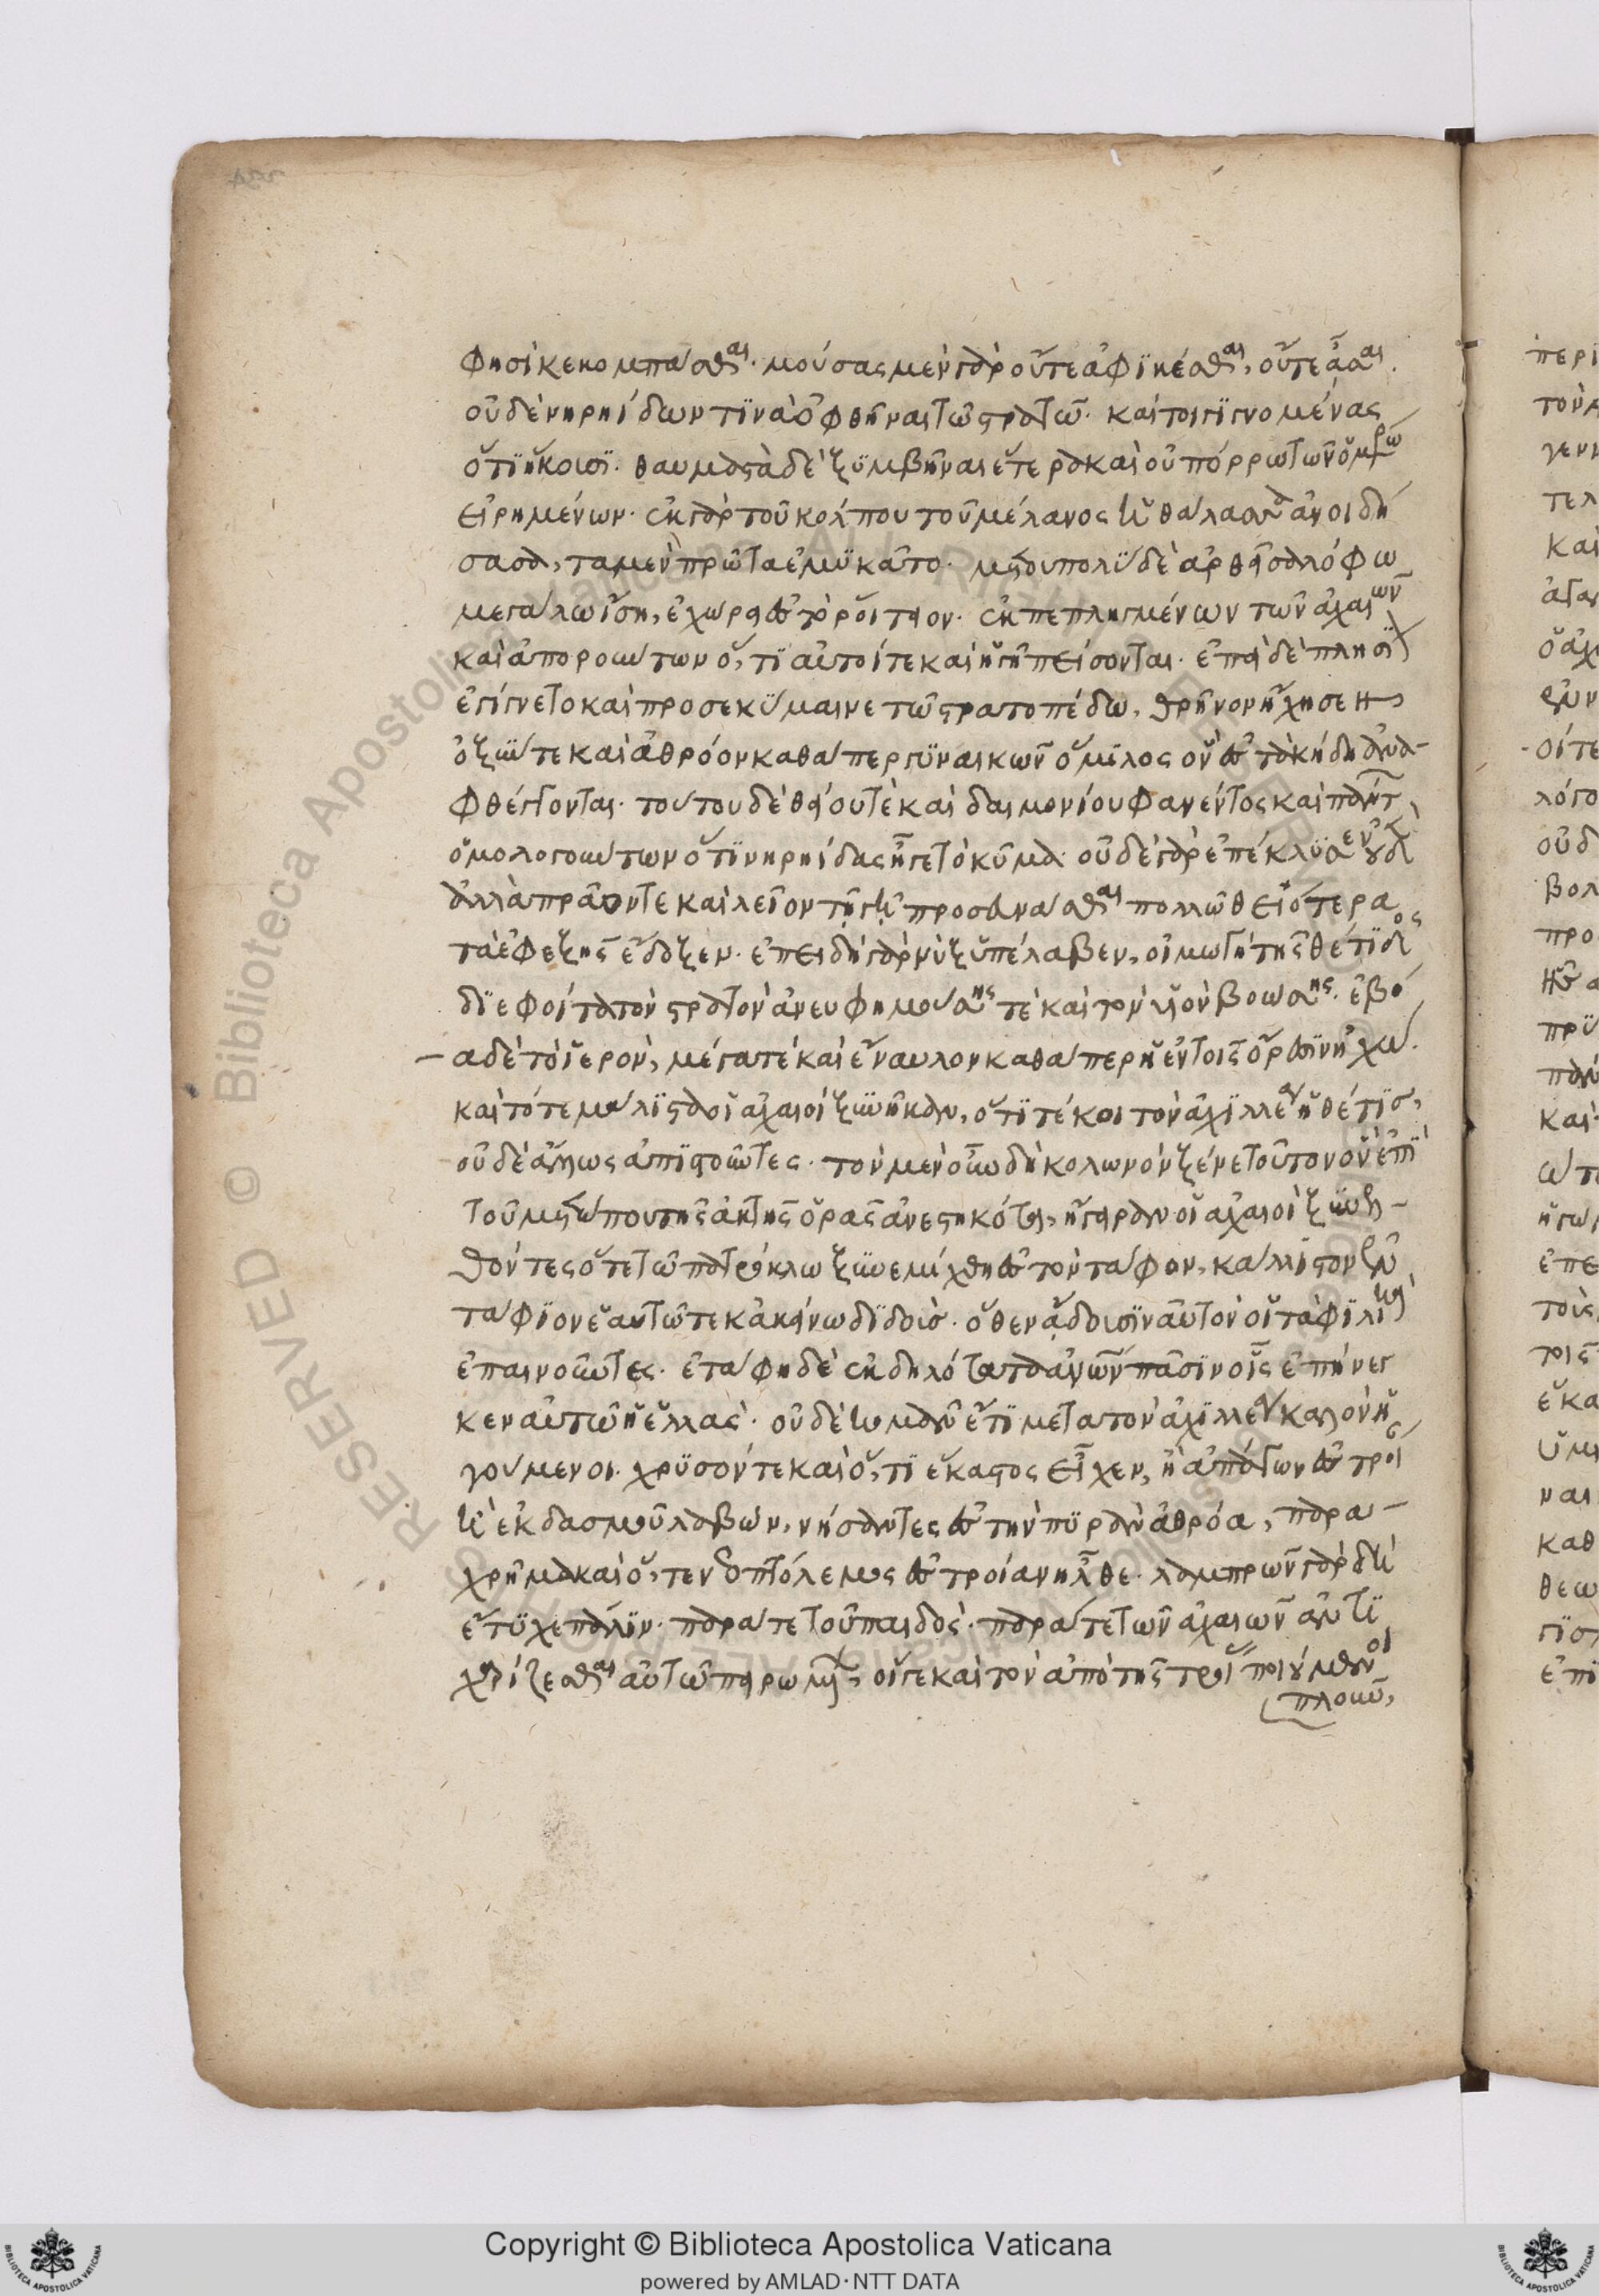 φησὶ κεκομπάσθαι· μούσας μὲν γὰρ οὔτε ἀφϊκέσθαι, οὔτε ᾆσαι.
οὐδὲ νηρηίδων τϊνὰ ὀφθῆναι τῶ στρατῶ· καίτοι γϊγνομένας
ὅτϊ ἥκουσϊ· θαυμαστὰ δὲ ξϋμβῆναι ἕτερα καὶ οὐ πόρρω τῶν ὁμήρω
εἰρημένων· ἐκ γὰρ τοῦ κόλπου τοῦ μέλανος ἡ θάλασσα ἀνοιδή
σασα, τὰ μὲν πρῶτα ἐμϋκᾶτο· μετ' οὐ πολὺ δὲ ἀρθεῖσα λόφω
μεγάλω ἴση, ἐχώρει ἐς τὸ ῥοίτειον· ἐκπεπληγμένων τῶν ἀχαιῶν
καὶ ἀπορούντων ὅ, τϊ αὐτοί τε καὶ ἡ γῆ πείσονται· ἐπεὶ δὲ πλησϊον
ἐγίγνετο καὶ προσεκύμαινε τῶ στρατοπέδω, θρῆνον ἤχησεν
ὀξύν τε καὶ ἀθρόον καθάπερ γϋναικῶν ὅμϊλος ὃν ἐς τὰ κήδη ἀνα-
φθέγγονται· τούτου δὲ θείου τὲ καὶ δαιμονίου φανέντος καὶ πάντων
ὁμολογούντων ὅτϊ νηρηίδας ἦγε τὸ κῦμα· οὐδὲ γὰρ ἐπέκλϋσεν οὐδὲν
ἀλλὰ πρᾶον τε καὶ λεῖον τῇ γῇ προσανα[...] πολλῶ θειότερα
τὰ ἐφεξῆς ἔδοξεν· ἐπειδὴ γὰρ νὺξ ὑπέλαβεν, οἰμωγὴ τῆς θέτϊδος
δϊεφοίτα τὸν στρατὸν ἀνευφημούσης τὲ καὶ τὸν υἱὸν βοώσης· ἐβό
α δὲ τορὸν, μέγα τέ καὶ ἔναυλον καθάπερ ἡ ἐν τοῖς ὄρεσϊν ἠχώ.
καὶ τότε μάλϊστα οἱ ἀχαιοὶ ξϋνῆκαν, ὅτϊ τέκοι τὸν ἀχϊλλέα ἡ θέτϊς,
οὐδὲ ἄλλως ἀπϊστοῦντες· τὸν μὲν οὖν δὴ κολωνὸν ξένε τοῦτον ὃν ἐπὶ
τοῦ μετώπου τῆς ἀκτῆς ὁρᾶς ἀνεστηκότα, ἤγειραν οἱ ἀχαιοὶ ξϋνελ-
θόντες ὅτε τῶ πατρόκλω ξϋνεμίχθη ἐς τὸν τάφον, κάλλϊστον ἐν
τάφϊον ἑαυτῶ τε κἀκείνω δϊδοὺς· ὅθεν ᾄδουσϊν αὐτὸν οἱ τὰ φϊλϊκὰ
ἐπαινοῦντες· ἐτάφη δὲ ἐκδηλότατα ἀνθρώπων πᾶσϊν οἷς ἐπήνεγ
κεν αὐτῶ ἡ ἑλλὰς· οὐδὲ κομᾶν ἔτϊ μετὰ τὸν ἀχϊλλέα καλὸν ἡ
γούμενοι· χρϋσόν τε καὶ ὅ, τϊ ἕκαστος εἶχεν, ἢ ἀπάγων ἐς τροίαν
ἢ ἐκ δασμοῦ λαβών, νήσαντες ἐς τὴν πϋρὰν ἀθρόα, παρα-
χρῆμα καὶ ὅ,τε νεοπτόλεμος ἐς τροίαν ἦλθε· λαμπρῶν γὰρ δὴ
ἔτϋχε πάλϊν· παρά τε τοῦ παιδὸς· παρά τε τῶν ἀχαιῶν ἀντϊ
χαρίζεσθαι αὐτῶ πειρωμένων, οἵ γε καὶ τὸν ἀπὸ τῆς τροίας ποιούμενοι
πλοῦν,